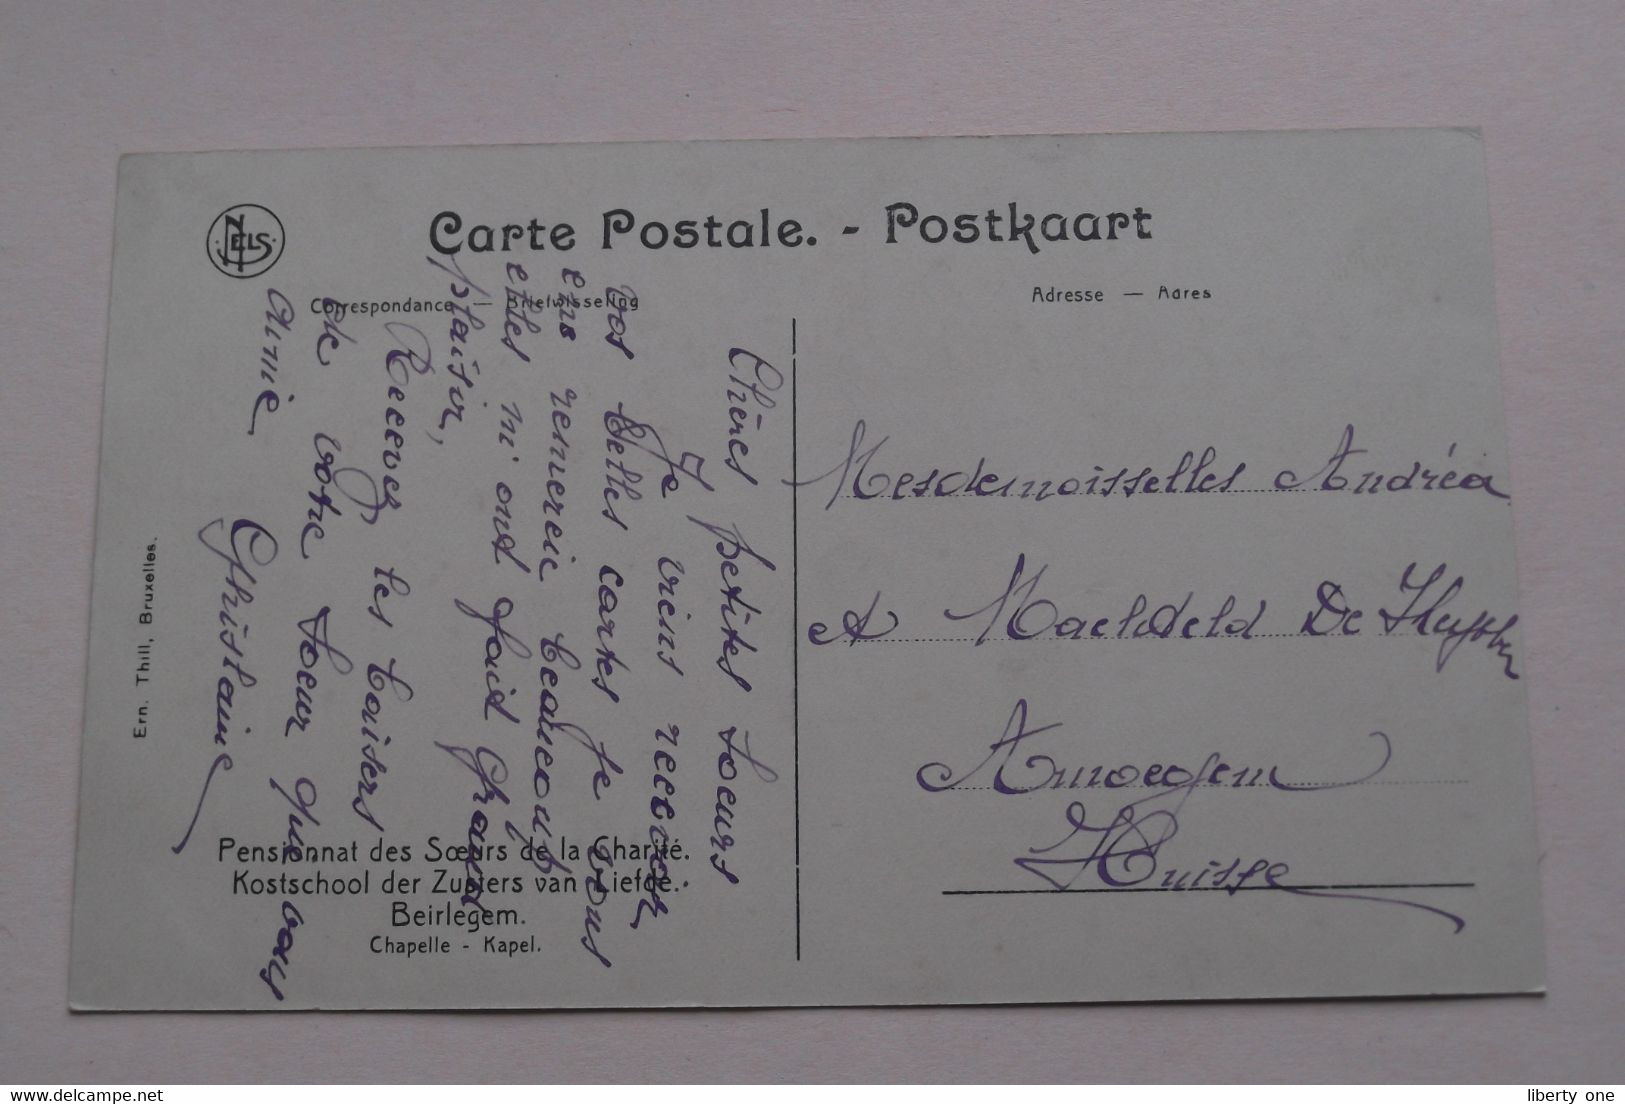 NELS
Carte Postale. - Postkaart
Correspondance — Briefwisseling
Adresse — Adres
Chères petites soeurs
Je viens recevoir
vos belles cartes je vous
en remercie beaucoup
elles m'ont faid grand
plaisir,
Recevez les baisers
de votre soeur que vous
aime
Ghislaine
Mesdemoisselles Andréa
et Machteld De
Huisse
Ern. Thill, Bruxelles.
Pensionnat des Sœurs de la Charité.
Kostschool der Zusters van Liefde.
Beirlegem.
Chapelle - Kapel.
www.delcampe.net
liberty one